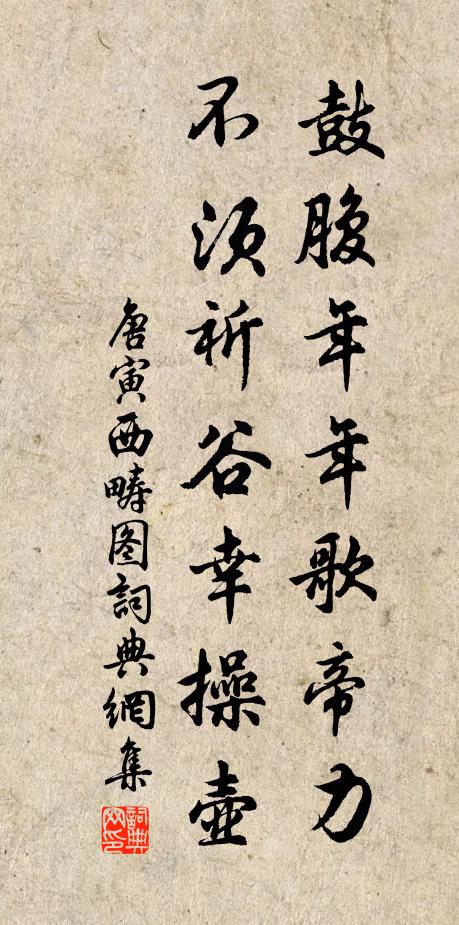 鼓腹年年歌帝力
不须祈谷幸操壶
唐寅西畴图詞典網集
詞典网印